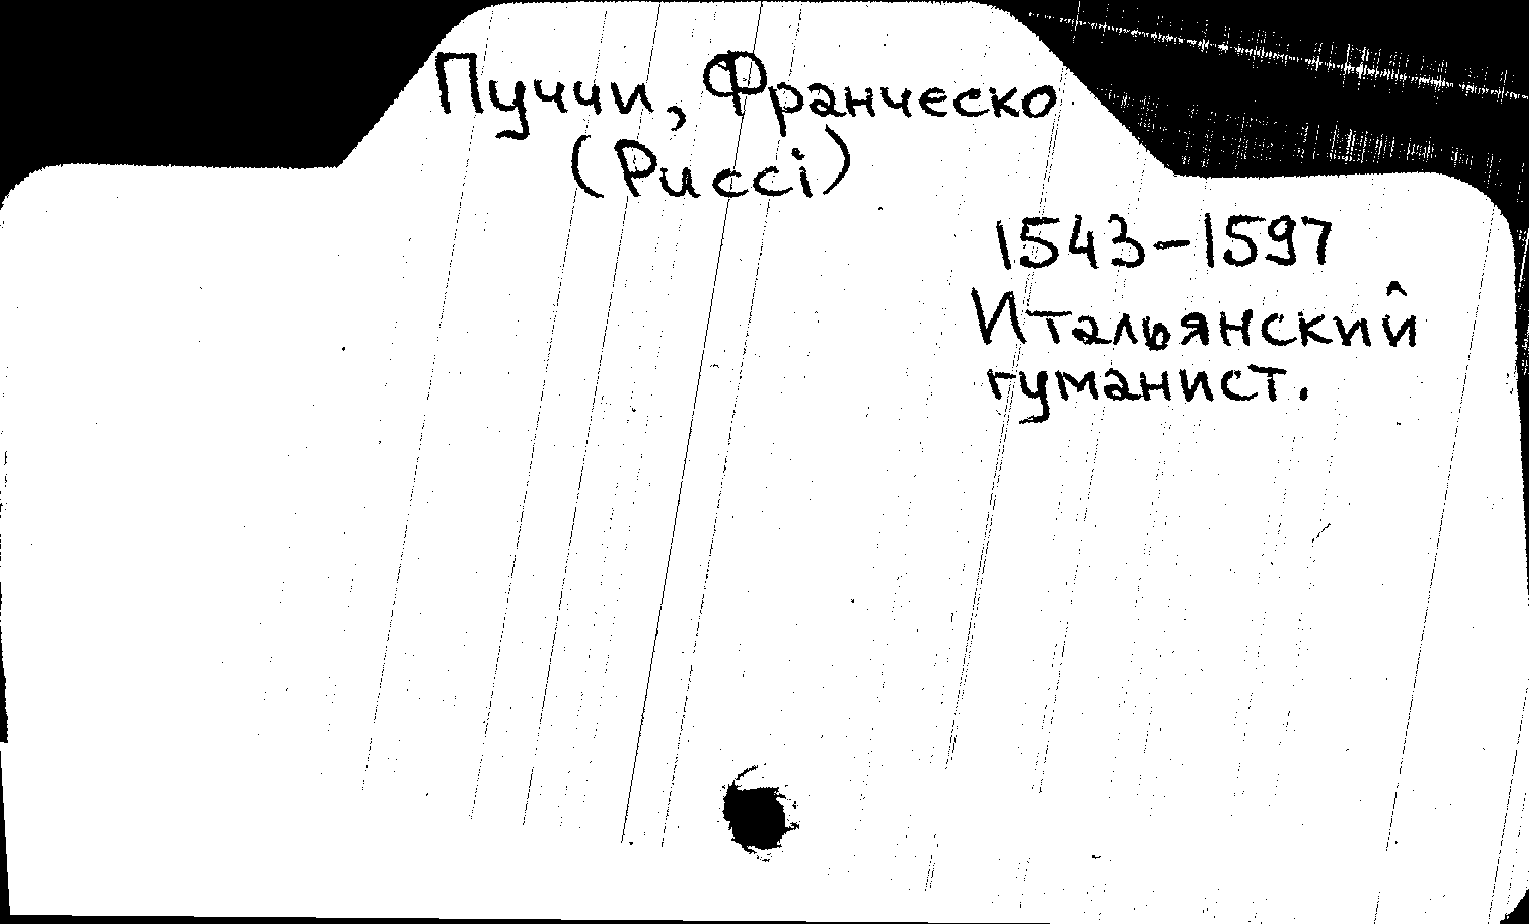 Пуччи, Франческо
(Pucci)
1543-1597
Итальянский
гуманист.